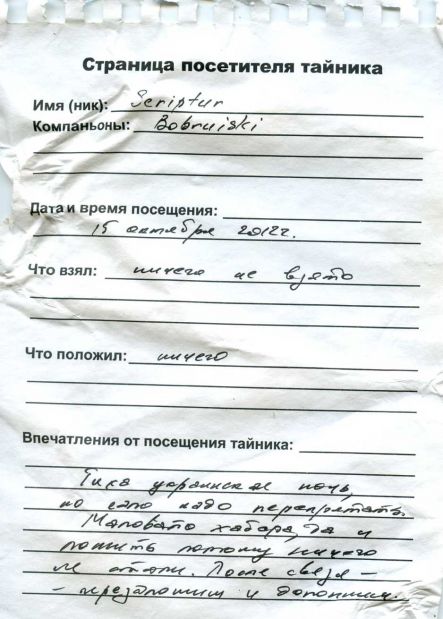 Страница посетителя тайника
Имя (ник): Scriptur
Компаньоны: Bobruiski
Дата и время посещения:
15 октября 2012г.
Что взял: ничего не взято
Что положил: ничего
Впечатления от посещения тайника:
Тиха украинская ночь,
но сало надо перепрятать.
Маловато хабара, да и
ложить потому ничего
не стали. После связи –
- перезаложим и дополним.